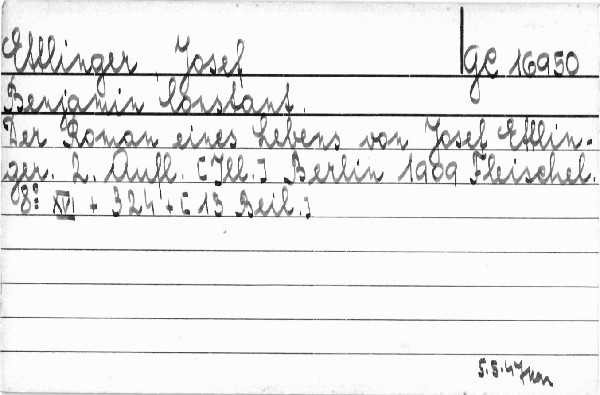 Ettlinger, Josef GC 16950
Benjamin Constant.
Der Roman eines Lebens von Josef Ettlin-
ger. 2. Aufl. [Ill.] Berlin 1909 Fleischel.
8° XVI + 324 + [13 Beil.]
5.5.47